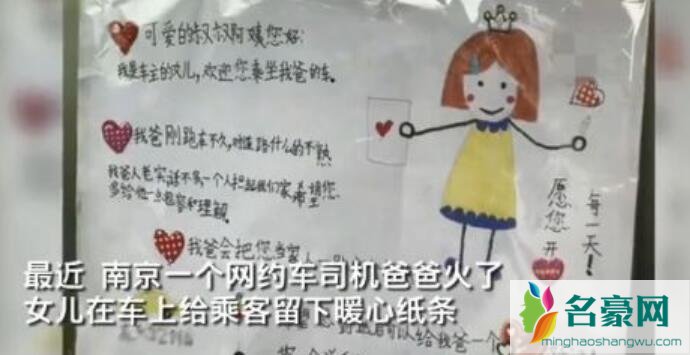 可爱的叔叔阿姨您好:
我是车主的女儿,欢迎您乘坐我爸的车。
我爸刚跑车不久,对道路什么的不熟
我爸人老实话不多一个人担起我们家希望您
多给他一点包容和理解。
我爸会把您当家人
愿您
每一天!
开
最近 南京一个网约车司机爸爸火了
女儿在车上给乘客留下暖心纸条
可以给我爸一个
名豪网
minghaoshangwu.com